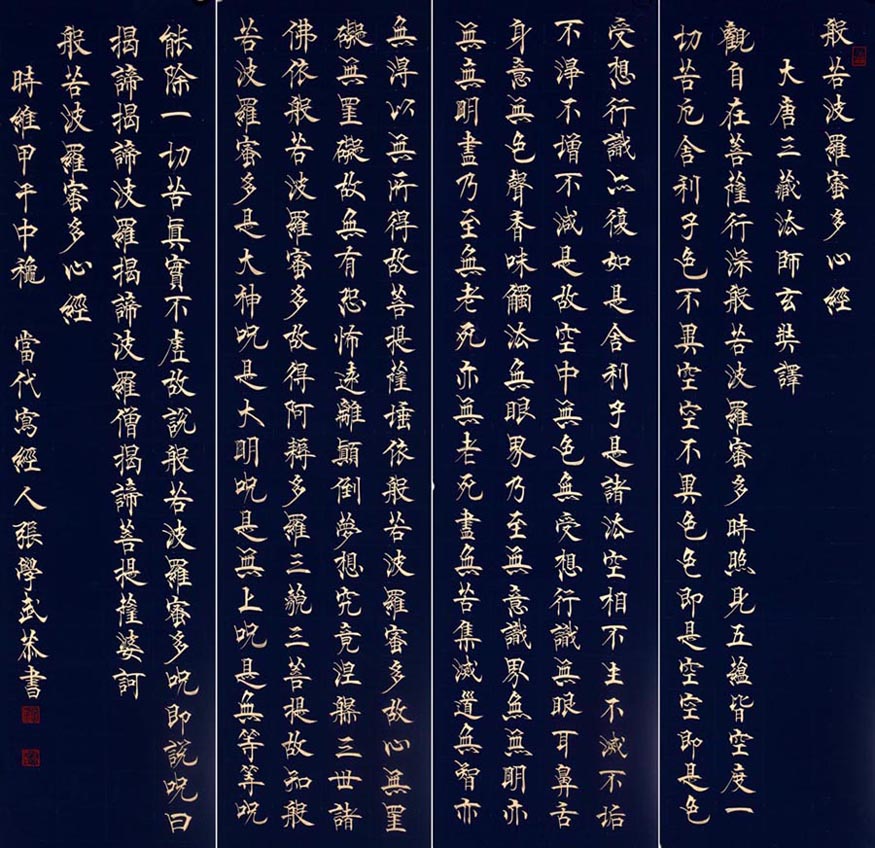 般若波羅蜜多心經
大唐三藏法師玄奘譯
觀自在菩薩行深般若波羅蜜多時照見五蘊皆空度一
切苦厄舍利子色不異空空不異色色即是空空即是色
受想行識亦復如是舍利子是諸法空相不生不滅不垢
不淨不增不減是故空中無色無受想行識無眼耳鼻舌
身意無色聲香味觸法無眼界乃至無意識界無無明亦
無無明盡乃至無老死亦無老死盡無苦集滅道無智亦
無得以無所得故菩提薩埵依般若波羅蜜多故心無罣
礙無罣礙故無有恐怖遠離顛倒夢想究竟涅槃三世諸
佛依般若波羅蜜多故得阿耨多羅三藐三菩提故知般
若波羅蜜多是大神呪是大明呪是無上呪是無等等呪
能除一切苦眞實不虛故說般若波羅蜜多呪即說呪曰
揭諦揭諦波羅揭諦波羅僧揭諦菩提薩婆訶
般若波羅蜜多心經
時維甲午中穐 當代寫經人張學武恭書